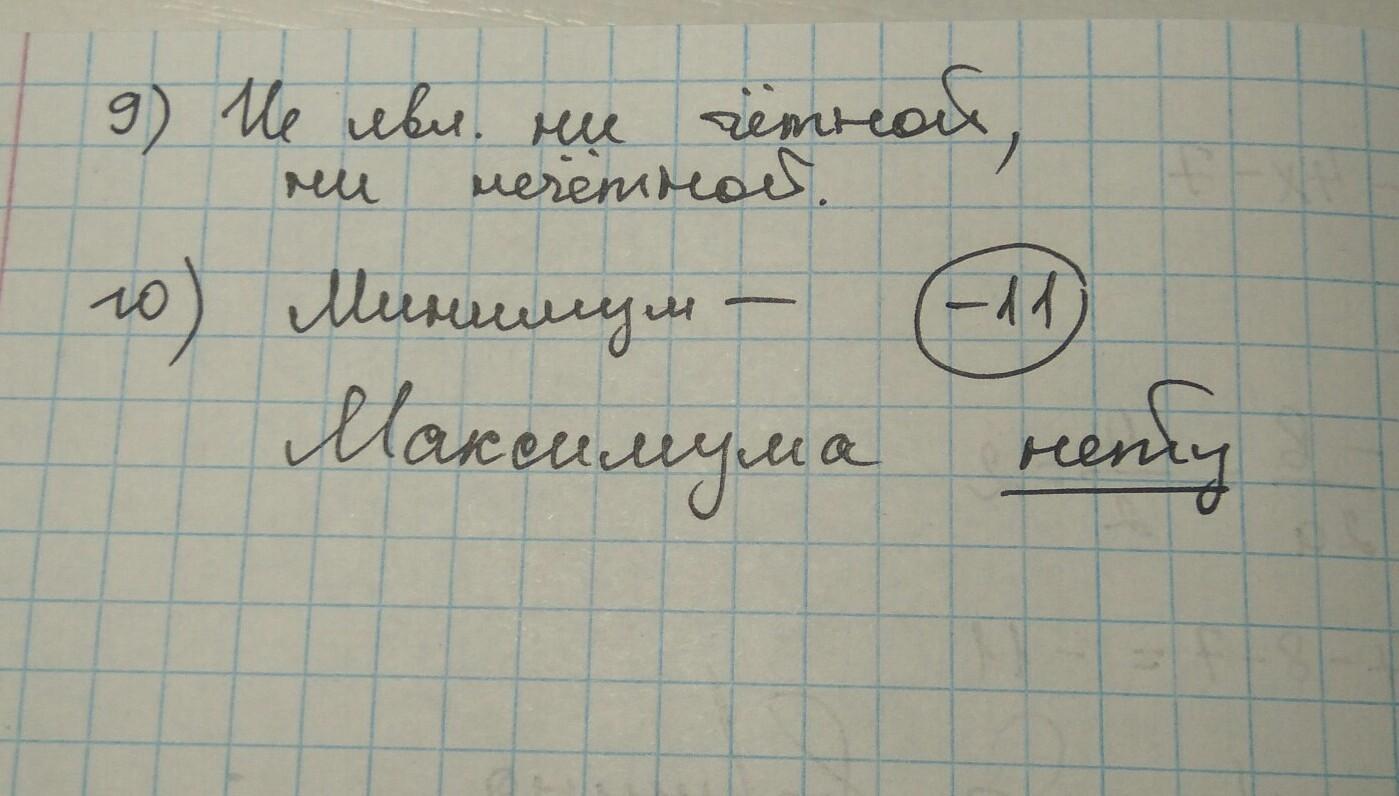 9) Не явл. ни чётной,
ни нечётной.
10) Минимум — -11
Максимума нету